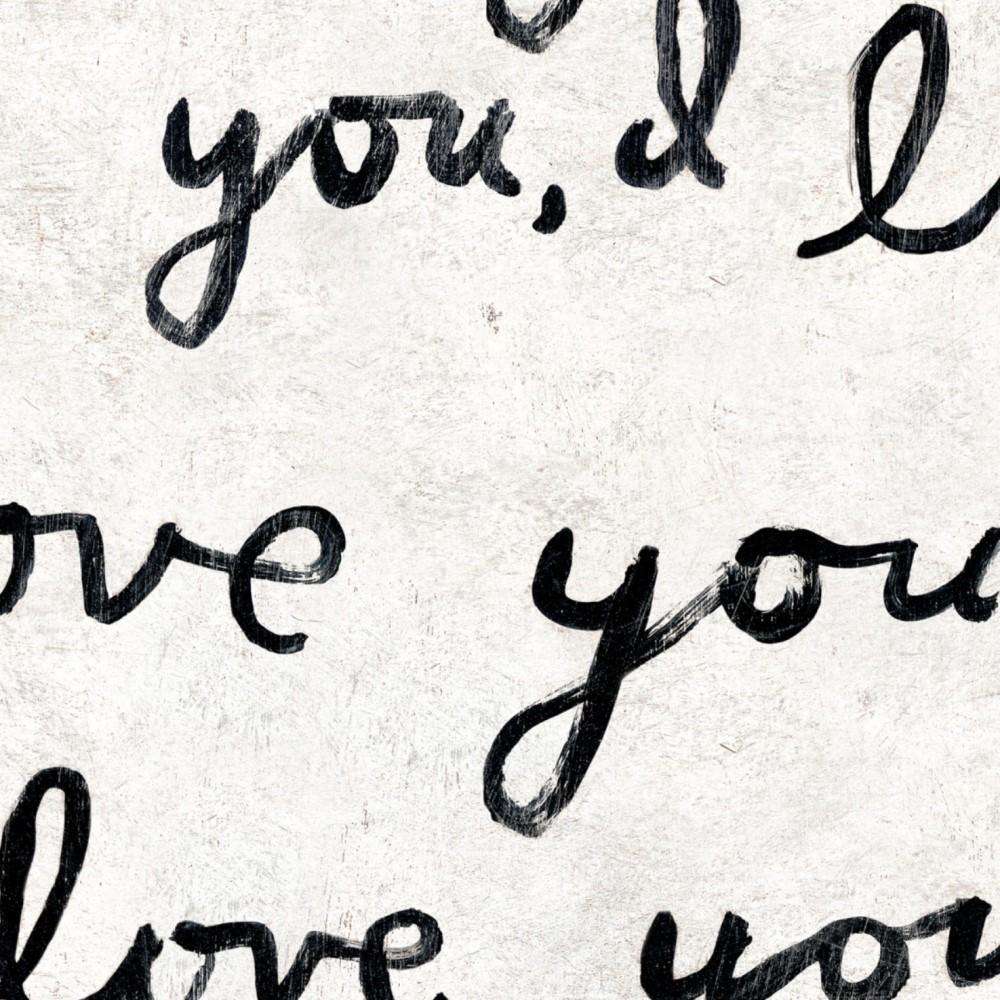 you, I l
ove you
love you